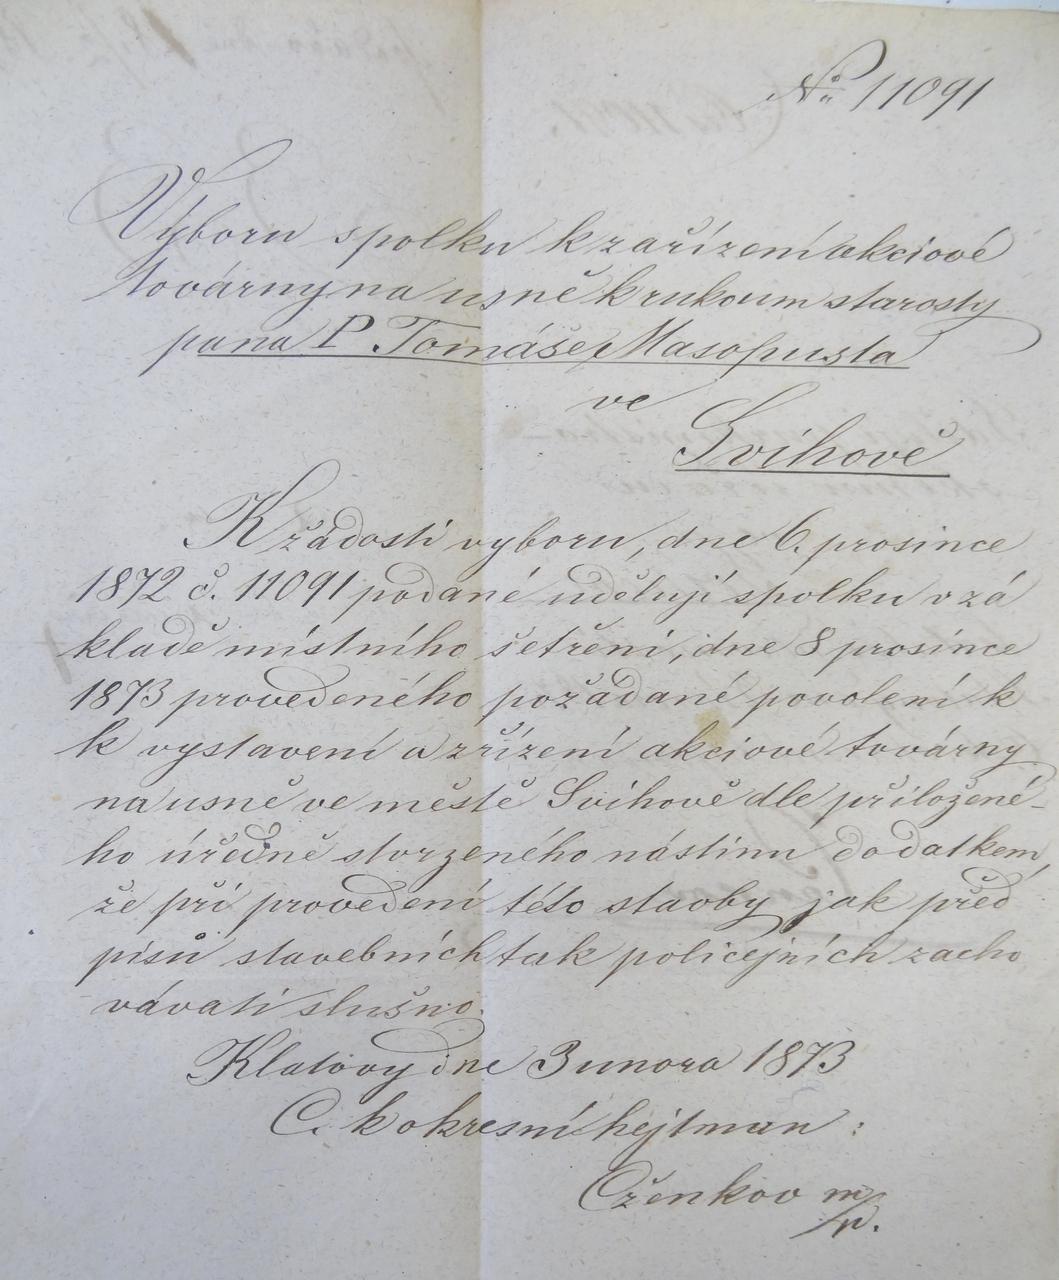 No 11091
Výboru spolku k zařízení akciové
továrny na usně k rukoum starosty
pana P. Tomáše Masopusta
ve
Švihově
K žádosti vyboru, dne 6. prosince
1872 č. 11091 podané uděluji spolku v zá
kladě místního šetření, dne 8 prosince
1873 provedeného požádané povolení k
k vystavení a zřízení akciové továrny
na usně ve městě Švihově dle přiložené-
ho úředně stvrzeného nástinu dodatkem,
že při provedení této stavby jak před
pisů stavebních tak policejních zacho
vávati slušno.
Klatovy dne 3 unora 1873
C. k okresní hejtman :
Czěnkov m/p.